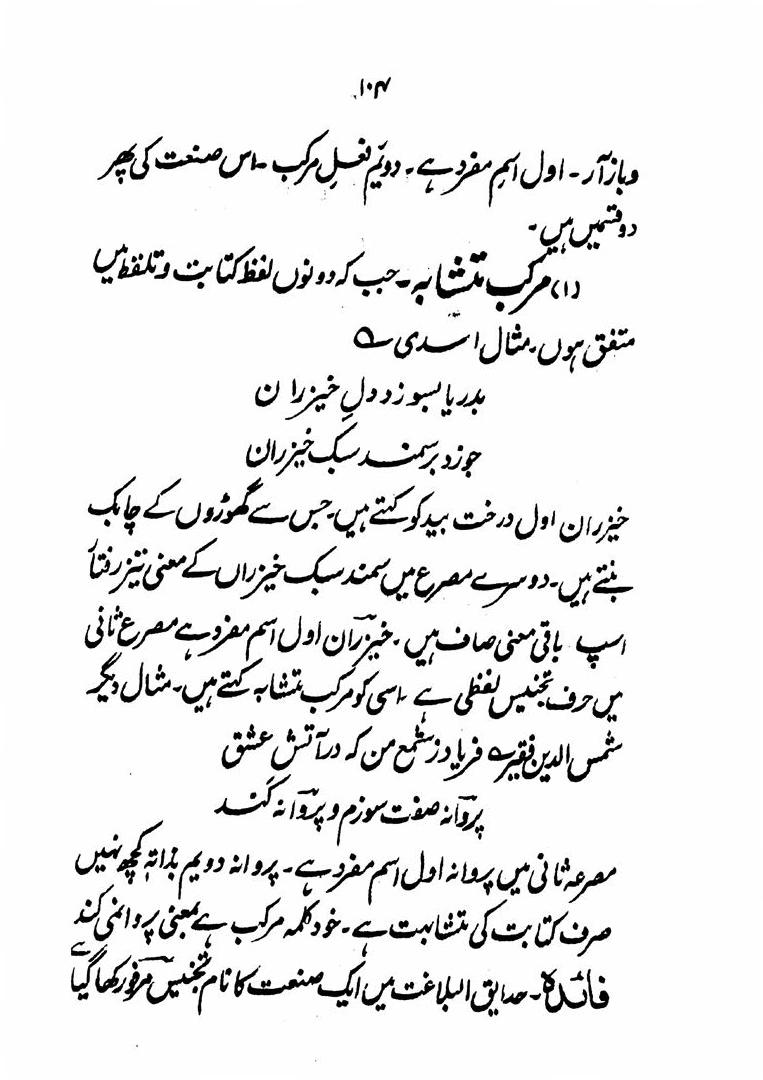 ۱۰۴
وباز آر۔ اول اسمِ مفرد ہے۔ دویم فعلِ مرکب ۔ اس صنعت کی پھر
دو قسمیں ہیں۔
(۱) مرکب متشابہ۔ جب کہ دونوں لفظ کتابت و تلفظ میں
متفق ہوں۔ مثال اسدی ے
بدریا بسوزد دلِ خیزران
چو زد بر سمند سبک خیزران
خیزران اول درخت بید کو کہتے ہیں۔ جس سے گھوڑوں کے چابک
بنتے ہیں۔ دوسرے مصرع میں سمند سبک خیزراں کے معنی تیز رفتار
اسپ باقی معنی صاف ہیں۔ خیزران اول اسم مفرد ہے مصرع ثانی
میں حرف تجنیس لفظی ہے ۔ اسی کو مرکب متشابہ کہتے ہیں۔ مثال دیگر
شمس الدین فقیر ے فریاد ز شمع من کہ در آتش عشق
پروانہ صفت سوزم و پروا نہ کند
مصرعہ ثانی میں پروانہ اول اسم مفرد ہے۔ پروانہ دویم بذاتہٖ کچھ نہیں
صرف کتابت کی متشابہت ہے۔ خود کلمہ مرکب ہے بمعنی پروا نمی کند
فائدہ۔ حدایق البلاغت میں ایک صنعت کا نام تجنیس مرفو رکھا گیا ہے